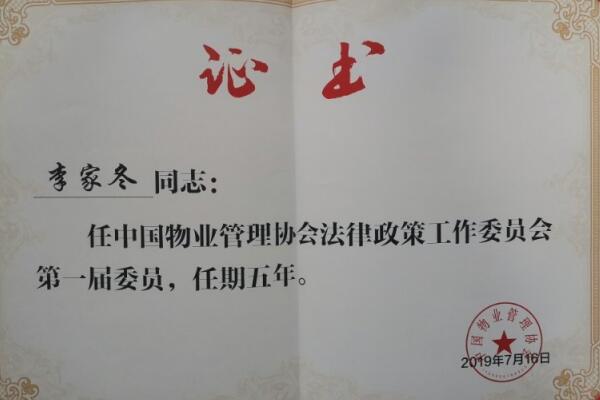 证书
李家冬 同志：
任中国物业管理协会法律政策工作委员会
第一届委员，任期五年。
中国物业管理协会
2019年7月16日